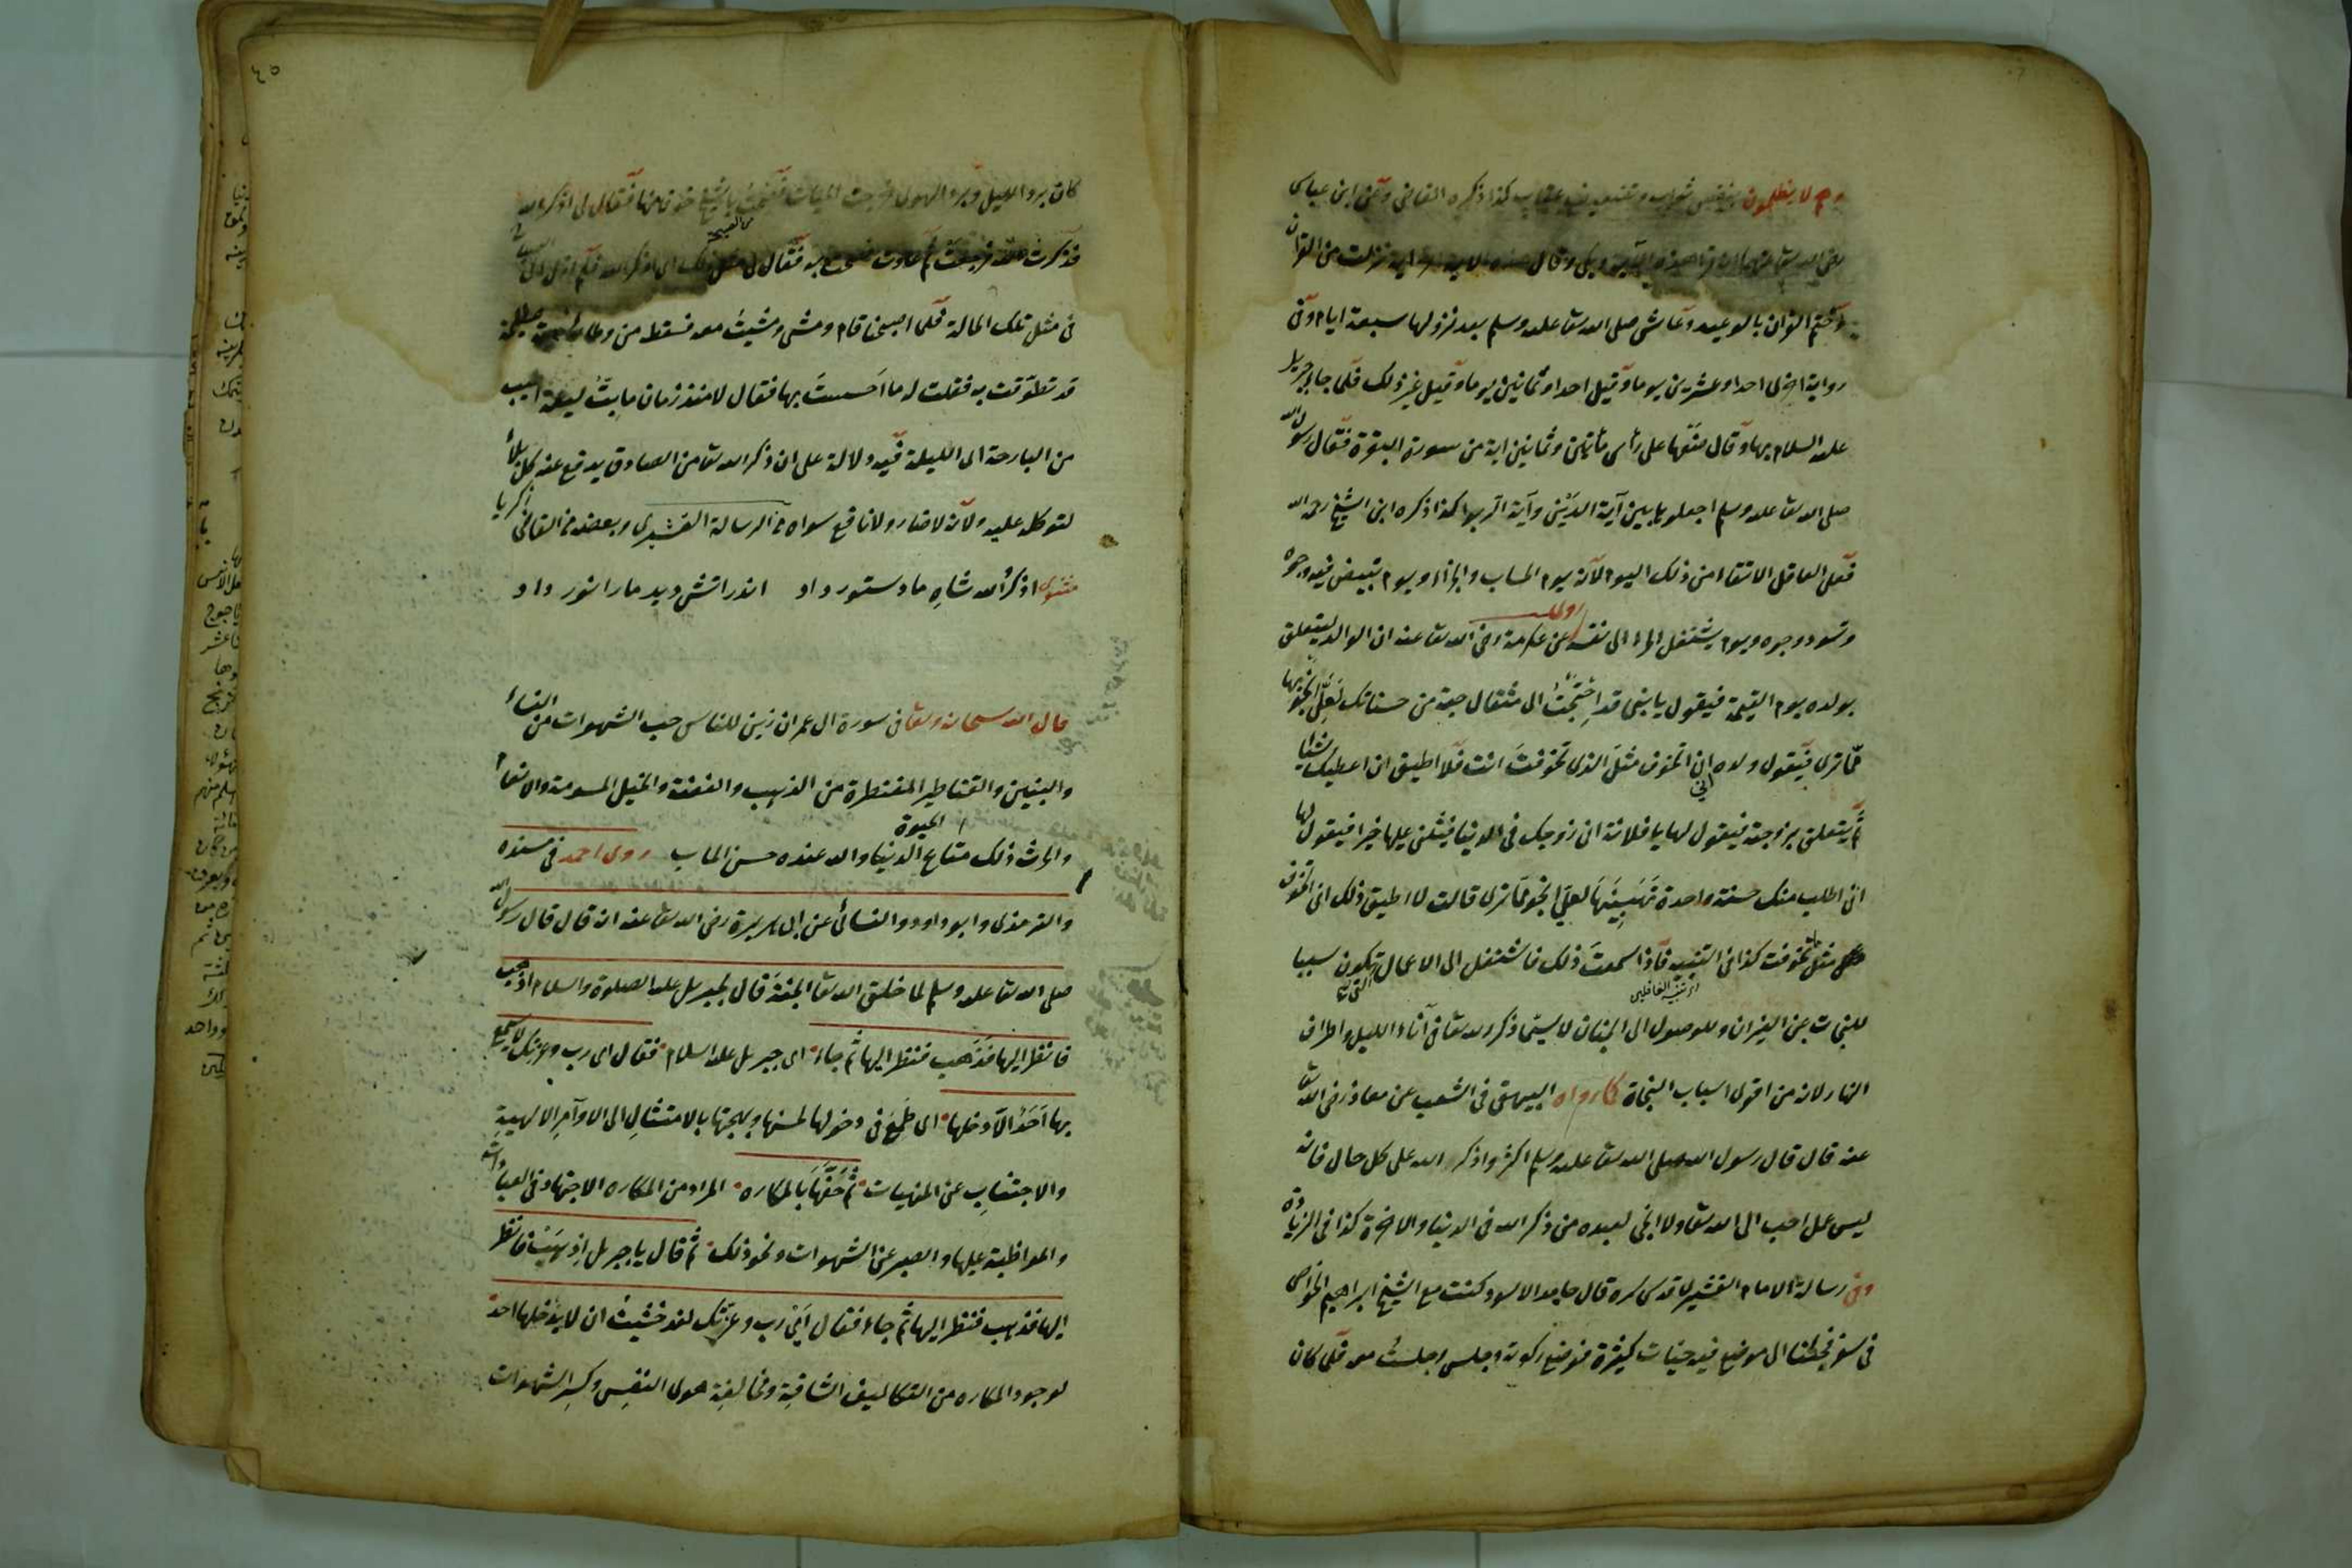 وهم لا يظلمون بنقص ثواب وتضعيف عقاب كذا ذكره القاضى وعن ابن عباس
رضى الله تعا عنهما انه قرأ هذه الآية وبكى وقال هذه الاية اخر اية نزلت من القرآن
وختم القرآن بالوعيد وعاش صلى الله تعا عليه وسلم بعد نزولها سبعة ايام وفى
رواية اخرى احدا وعشرين يوما وقيل احدا وثمانين يوما وقيل غير ذلك فلما جاء جبريل
عليه السلام بها وقال ضعها على رأس مأتين وثمانين اية من سورة البقرة فقال رسول الله
صلى الله تعا عليه وسلم اجعلوها بين آية الدين وآية الربوا كذا ذكره ابن الشيخ رحمه الله
فعلى العاقل الاتقاء من ذلك اليوم لانه يوم الحساب والجزاء ويوم تبيض فيه وجوه
وتسود وجوه ويوم يشتغل المرء الى نفسه روى عن عكرمة رضى الله تعا عنه ان الوالد ليتعلق
بولده يوم القيمة فيقول يا بنى قد احتجت الى مثقال حبة من حسناتك لعلى انجو بها
مما ترى فيقول ولده انى اتخوف مثل الذى تخوفت انت فلا اطيق ان اعطيك شيئا
ثم يتعلق بزوجته فيقول لها يا فلانة انى زوجك فى الدنيا فيثنى عليها خيرا فيقول لها
انى اطلب منك حسنة واحدة تهبينها لعلى انجو مما ترى قالت لا اطيق ذلك انى اتخوف
مثل ما تخوفت كذا فى التنبيه فاذا سمعت ذلك فاشتغل الى الاعمال التى تكون سببا
اى تنبيه الغافلين
للنجات عن النيران وللوصول الى الجنان لا سيما ذكر الله تعا فى آناء الليل واطراف
النهار لانه من اقوى اسباب النجاة كما رواه البيهقى فى الشعب عن معاذ رضى الله تعا
عنه قال قال رسول الله صلى الله تعا عليه وسلم اكثروا ذكر الله على كل حال فانه
ليس عمل احب الى الله تعا ولا انجى لعبده من ذكر الله فى الدنيا والاخرة كذا فى الزيادة
وفى رسالة الامام القشيرى قدس سره قال حامد الاسود كنت مع الشيخ ابراهيم الخواص
فى سفر فجئنا الى موضع فيه حيات كثيرة فوضع ركوته وجلس وجلست معه فلما كان
٤٥
كان برد الليل وبرد الهوى خرجت الحيات فصحت يا شيخ خوفا منها فقال لى اذكر الله
فذكرت الله فرجعت ثم عادت فصحت به فقال لى مثل ذلك اى اذكر الله فلم ازل الى
من الصيحة
فى مثل تلك الحالة فلما اصبحنا قام ومشى ومشيت معه فسقط من وطائه حية عظيمة
قد تطوقت به فقلت له ما احسست بها فقال لا منذ زمان ما بت ليلة اطيب
من البارحة الى الليلة فيه دلالة على ان ذكر الله تعا من الصادق يدفع عنه كل بلاء
لتوكله عليه ولانه لا ضار ولا نافع سواه فى الرسالة القشيرى وبعضه فى القاضى زكريا
مثنوى اذكر الله شاه ما دستور داد اندر اتش ديد مارا نور داد
قال الله سبحانه وتعا فى سورة ال عمران زين للناس حب الشهوات من النساء
والبنين والقناطير المقنطرة من الذهب والفضة والخيل المسومة والانعام
والحرث ذلك متاع الحيوة الدنيا والله عنده حسن الماب روى احمد فى مسنده
والترمذى وابو داود والنسائى عن ابى هريرة رضى الله تعا عنه انه قال قال رسول الله
صلى الله تعا عليه وسلم لما خلق الله تعا الجنة قال لجبريل عليه الصلوة والسلام اذهب
فانظر اليها فذهب فنظر اليها ثم جاء اى جبريل عليه السلام فقال اى رب وعزتك لا يسمع
بها احد الا دخلها اى طمع فى دخولها لحسنها وبهجتها بالامتثال الى الاوامر الالهية
والاجتناب عن المنهيات ثم حفها بالمكاره المراد من المكاره الاجتهاد فى العبادات
والمواظبة عليها والصبر عن الشهوات ونحو ذلك ثم قال يا جبريل اذهب فانظر
اليها فذهب فنظر اليها ثم جاء فقال اى رب وعزتك لقد خشيت ان لا يدخلها احد
لوجود المكاره من التكاليف الشاقة ومخالفة هوى النفس وكسر الشهوات